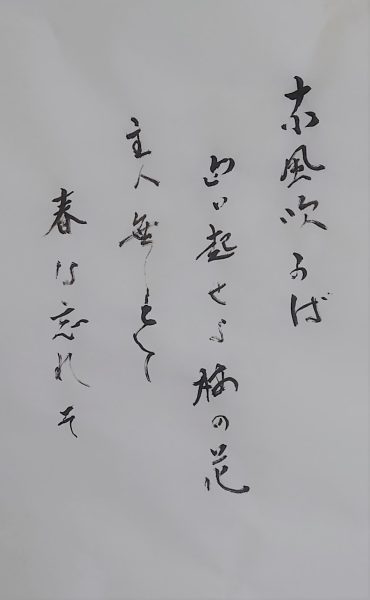 東風吹かば
匂ひ起せよ梅の花
主人無しとて
春な忘れそ